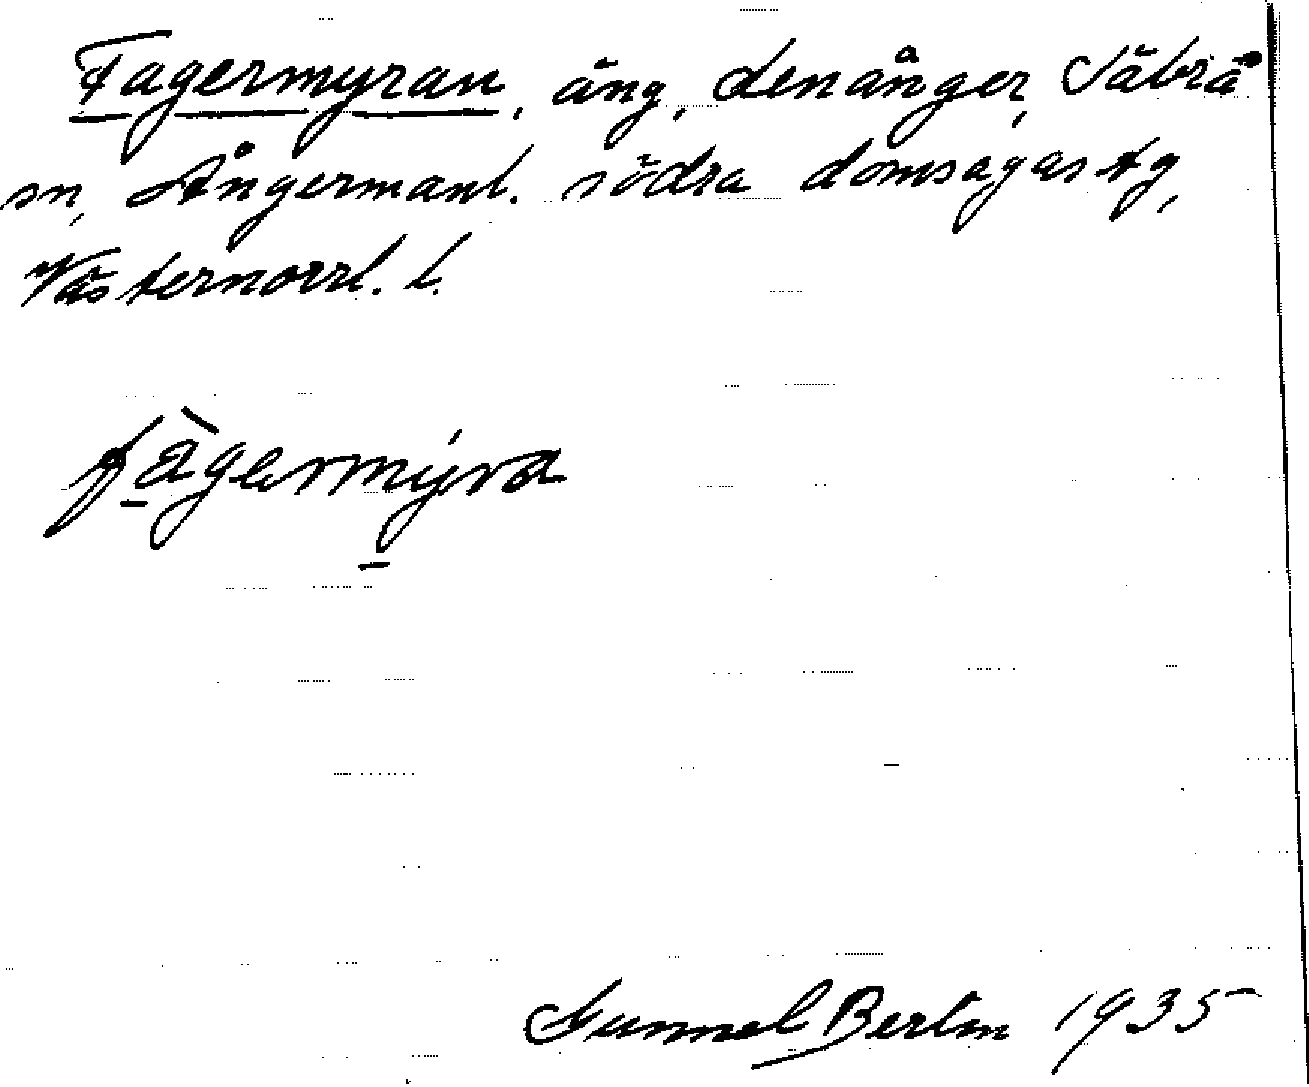 Fagermyran, äng, Lenånger, Säbrå
sn, Ångermanl. södra domsagas tg,
Västernorrl. l.
fàgermýra
Gunnel Berlin 1935